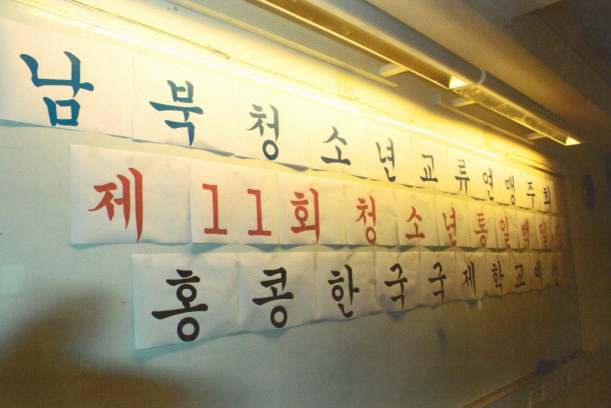 남북청소년교류연맹주최
제11회청소년통일백일장
홍콩한국국제학교예선